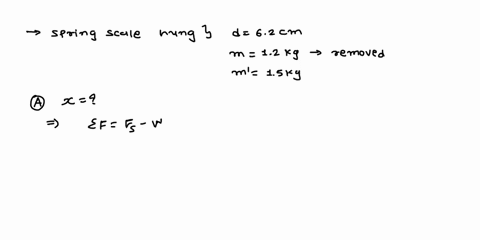 → spring scale hung } d = 6.2 cm
m = 1.2 kg → removed
m' = 1.5 kg
Ⓐ x = ?
⇒ ΣF = Fs - W